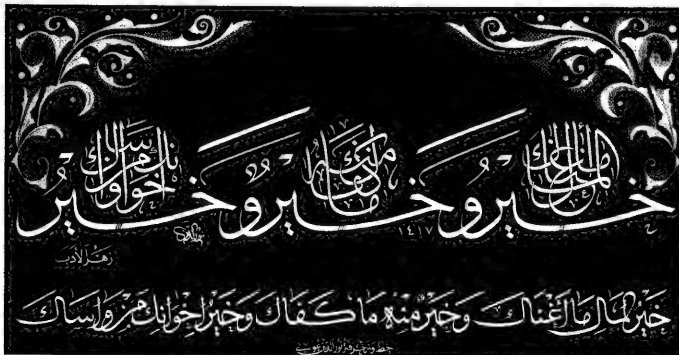 خير المال ما أغناك
وخير منه ما كفاك
وخير إخوانك من واساك
١٤١٧
زهر الأدب
خَيْرُ المَالِ مَا أَغْنَاكَ وَخَيْرٌ مِنْهُ مَا كَفَاكَ وَخَيْرُ إِخْوَانِكَ مَنْ وَاسَاكَ
خط وزخرفة